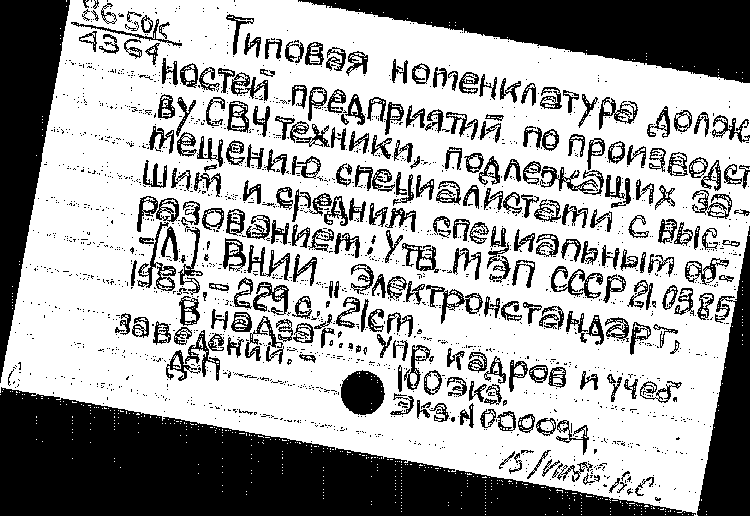 86-50К
4364
Типовая номенклатура долж
ностей предприятий по производст
ву СВЧ техники, подлежащих за-
мещению специалистами с выс-
шим и средним специальным об-
разованием: Утв МЭП СССР 21.03.85
.-[Л.]: ВНИИ "Электронстандарт,
1985.-229с.; 21см.
В надзаг.:... Упр. кадров и учеб.
заведений.-
Деп.
100 экз.
Экз.N 000094.
15/VIII86. А.С.